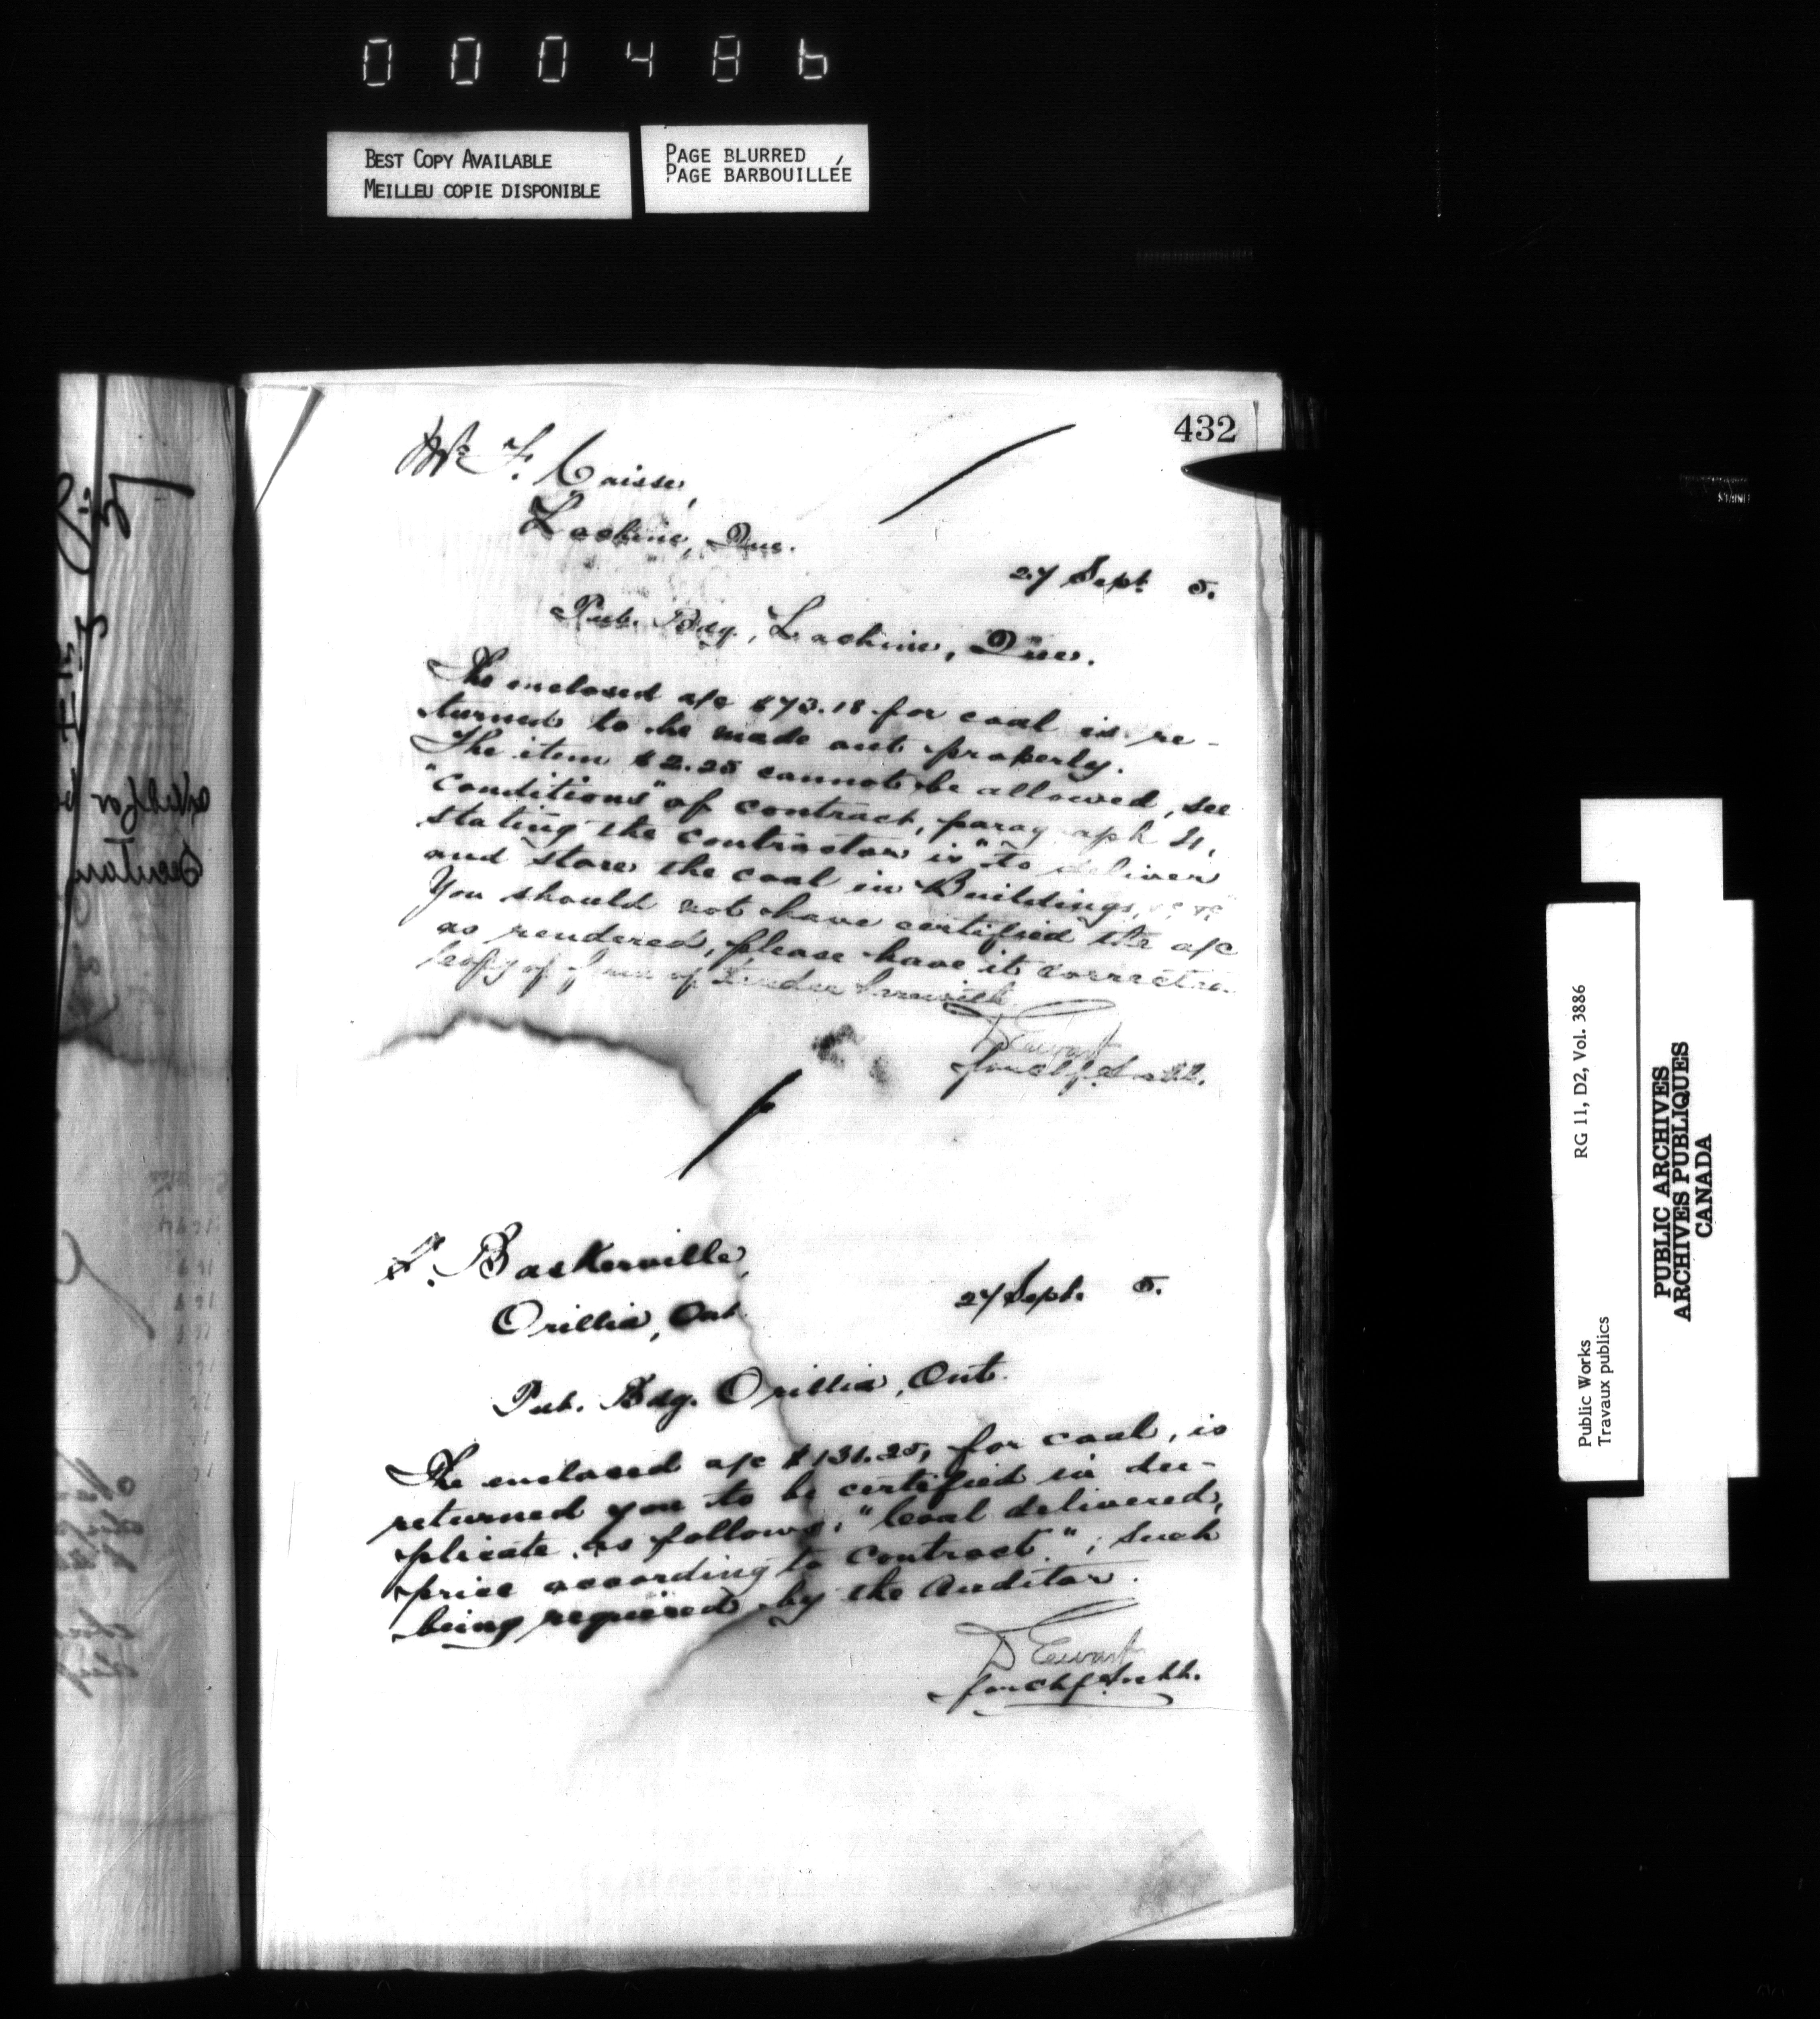 000486
BEST COPY AVAILABLE
MEILLEU COPIE DISPONIBLE
PAGE BLURRED
PAGE BARBOUILLÉE
432
F. Caisse,
Lachine, Que.
27 Sept. 5.
Pub. Bdg., Lachine, Que.
The enclosed a/c $73.18 for coal is re-
turned to be made out properly.
The item $2.25 cannot be allowed, see
"Conditions" of contract, paragraph
stating the contractor is "to deliver
and store the coal in Buildings, &c &c"
You should not have certified the a/c
as rendered, please have it corrected
Copy of form of Tender herewith.
D Ewart
for Chf. Archt.
Baskerville,
Orillia, Ont.
27 Sept. 5.
Pub. Bdg. Orillia, Ont.
The enclosed a/c $131.25, for coal, is
returned you to be certified in du-
plicate as follows, "Coal delivered,
price according to contract"; such
being required by the Auditor.
D Ewart
for Chf. Archt.
Public Works
Travaux publics
RG 11, D2, Vol. 3886
PUBLIC ARCHIVES
ARCHIVES PUBLIQUES
CANADA